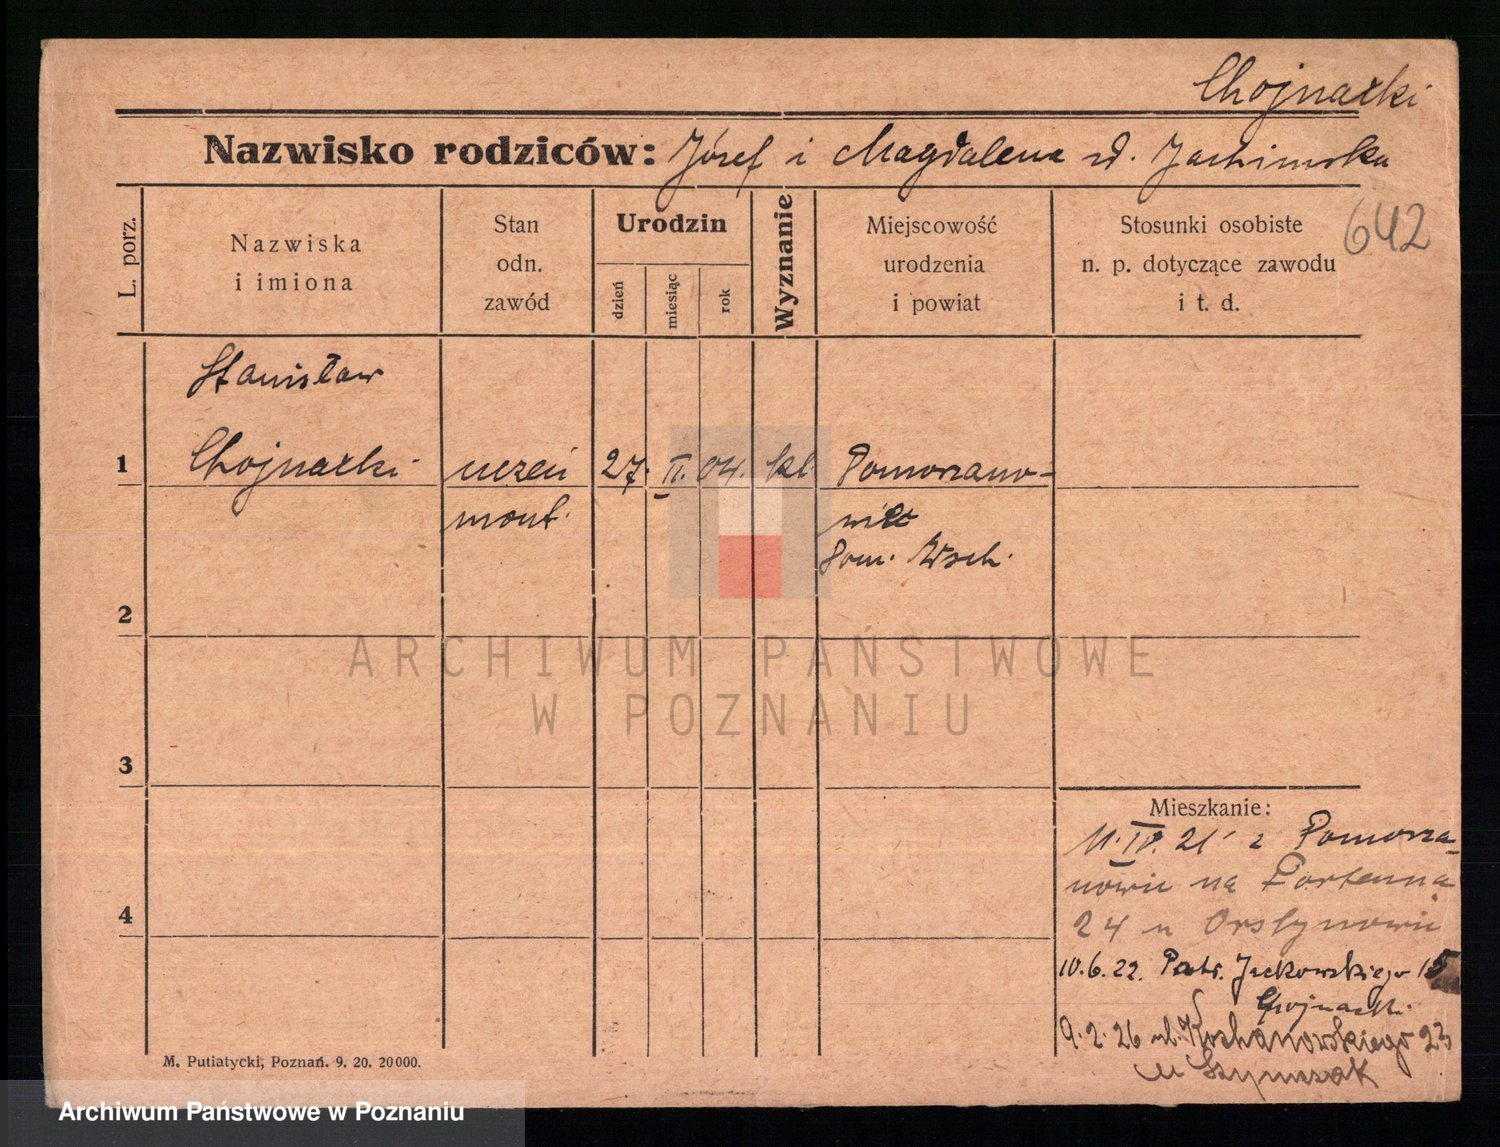 Chojnacki
Nazwisko rodziców: Józef i Magdalena zd. Jachimska
642
L. porz.
Nazwiska
i imiona
Stan
odn.
zawód
Urodzin
dzień
miesiąc
rok
Wyznanie
Miejscowość
urodzenia
i powiat
Stosunki osobiste
n. p. dotyczące zawodu
i t. d.
Stanisław
1 Chojnacki uczeń 27. II. 04. kt. Pomorzano-
mont. wice
pow. Wsch.
2
3
4
ARCHIWUM PAŃSTWOWE
W POZNANIU
Mieszkanie:
11. IV. 21 z Pomorza-
nowic na Fortenna
24 u
10.6.22. Patr. Jackowskiego 15
Chojnacki
9.2.26 ul. Kochanowskiego 23
u Szymczak
M. Putiatycki, Poznań. 9. 20. 20000.
Archiwum Państwowe w Poznaniu